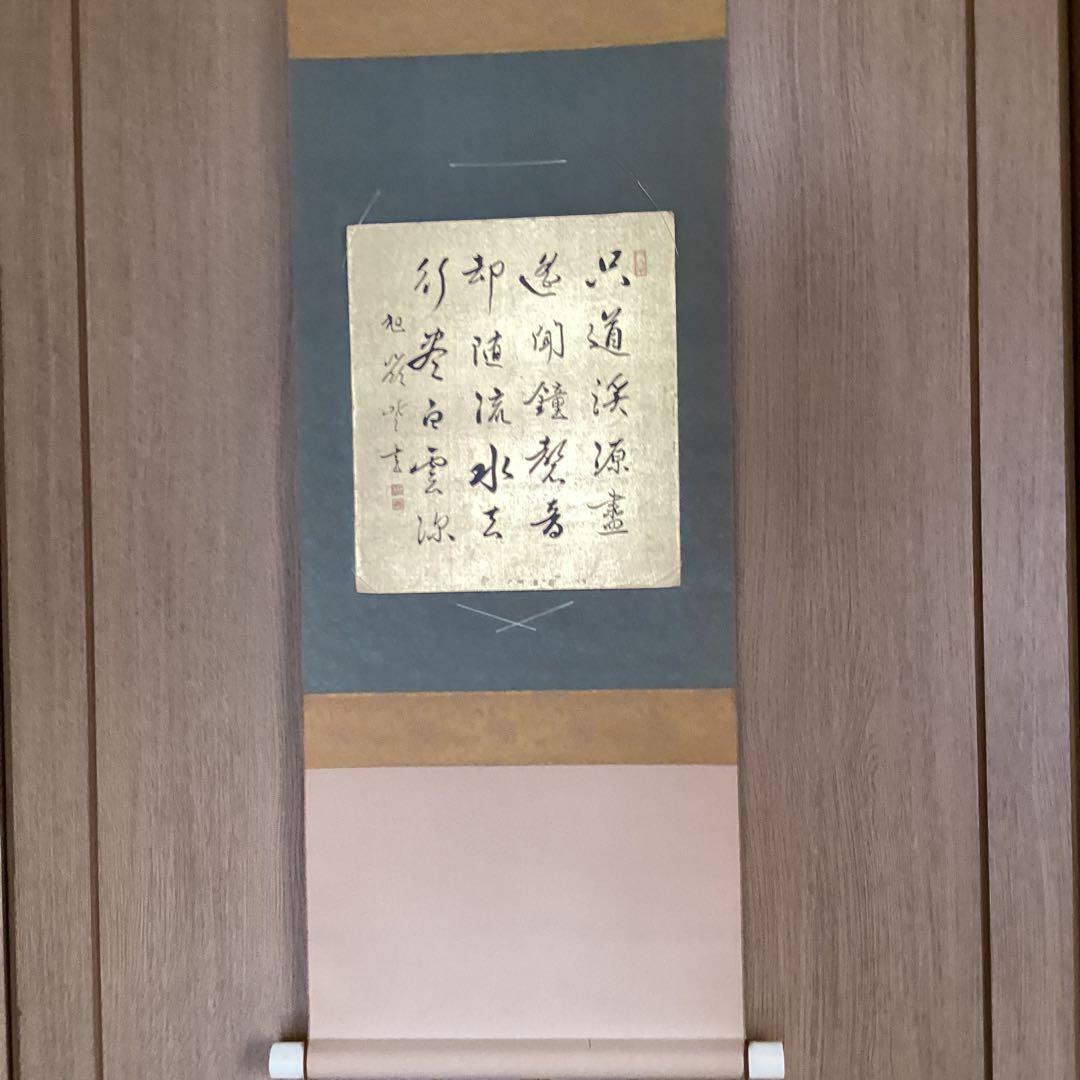 只道渓源盡
遙聞鐘磬音
却随流水去
行盡白雲深
旭嶺